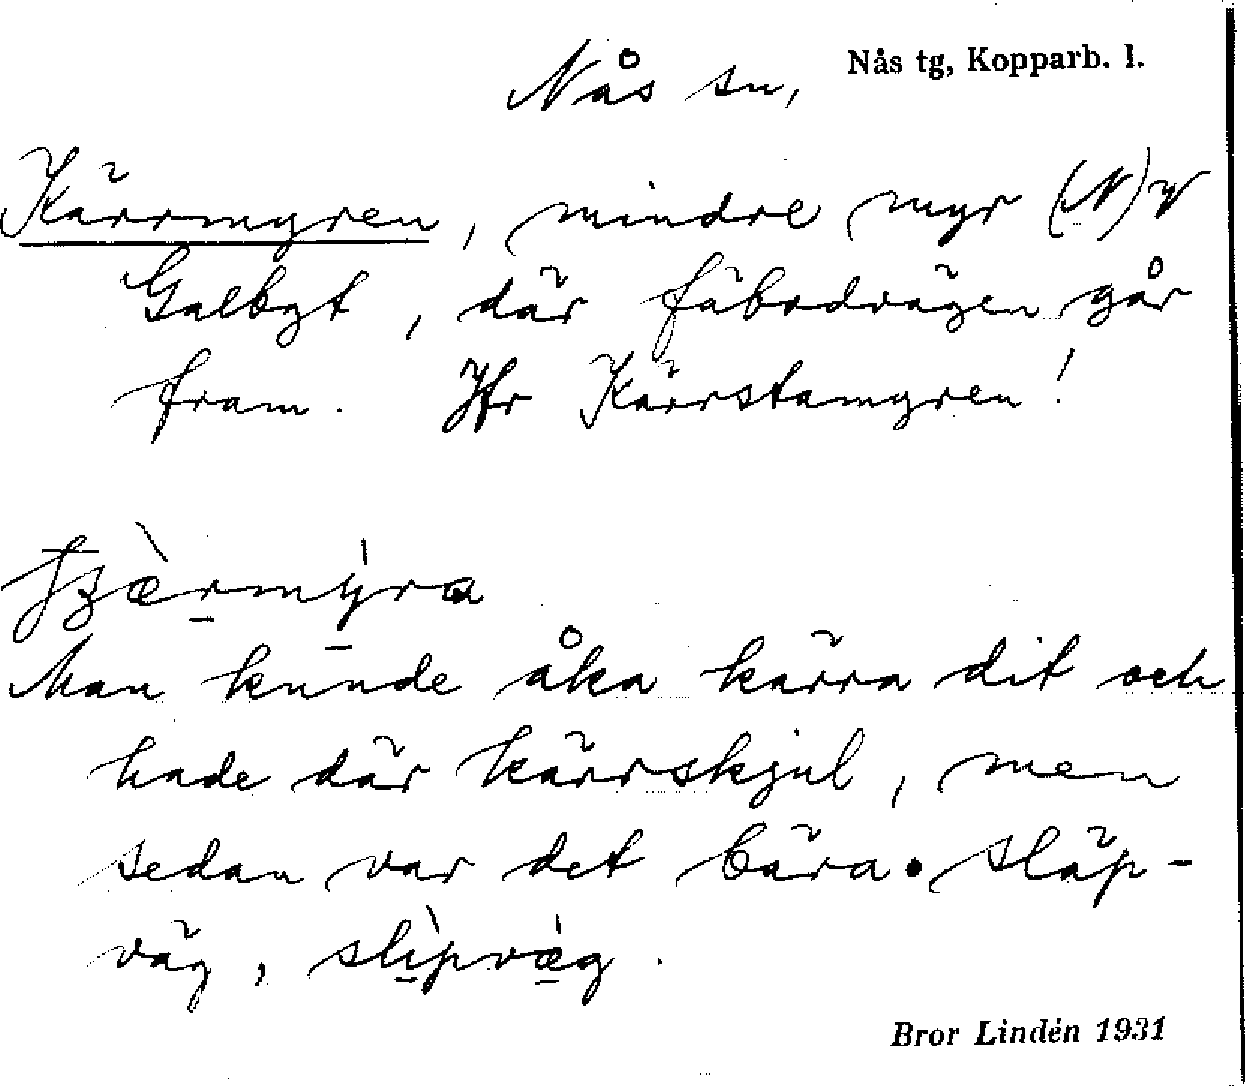 Nås sn,
Nås tg, Kopparb. l.
Kärrmyren, mindre myr (N)V
Galbyt, där fäbodvägen går
fram. Jfr Kärrstamyren!
Man kunde åka kärra dit och
hade där kärrskjul, men
sedan var det bära. släp-
väg, slìpvæ̀g.
Bror Lindén 1931